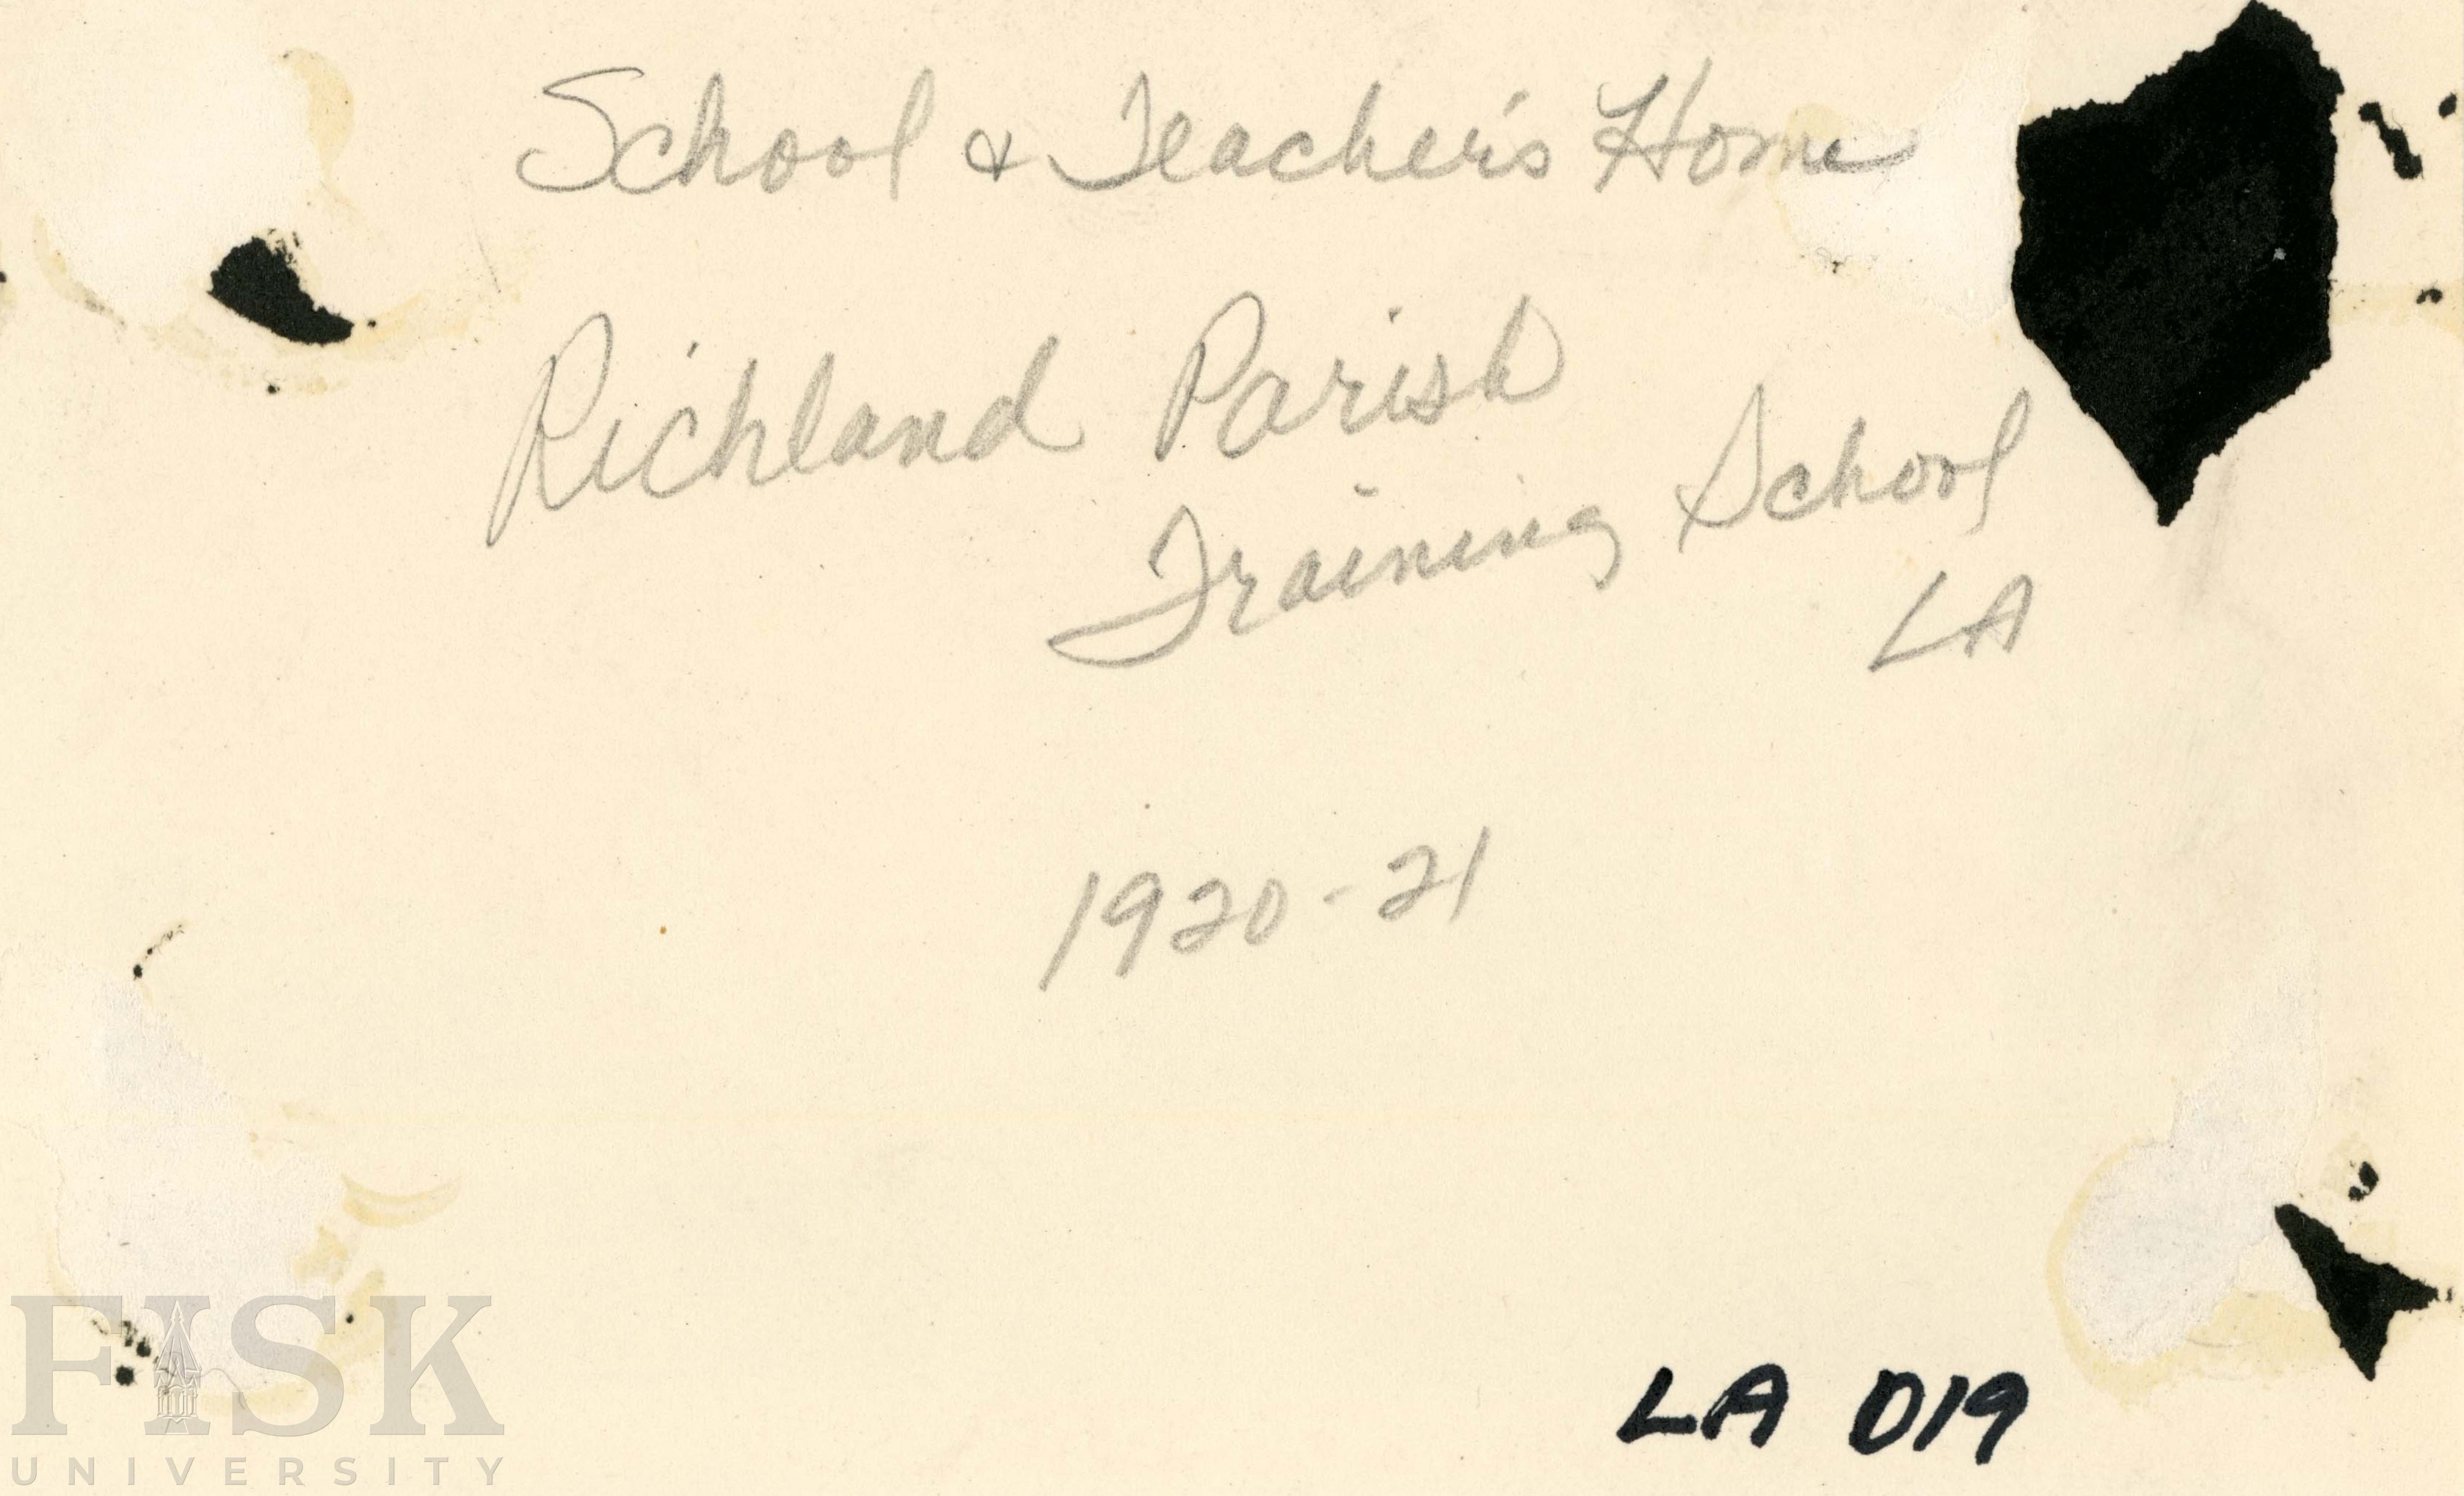 School & Teacher's Home
Richland Parish
Training School
LA
1920-21
LA 019
FISK
UNIVERSITY